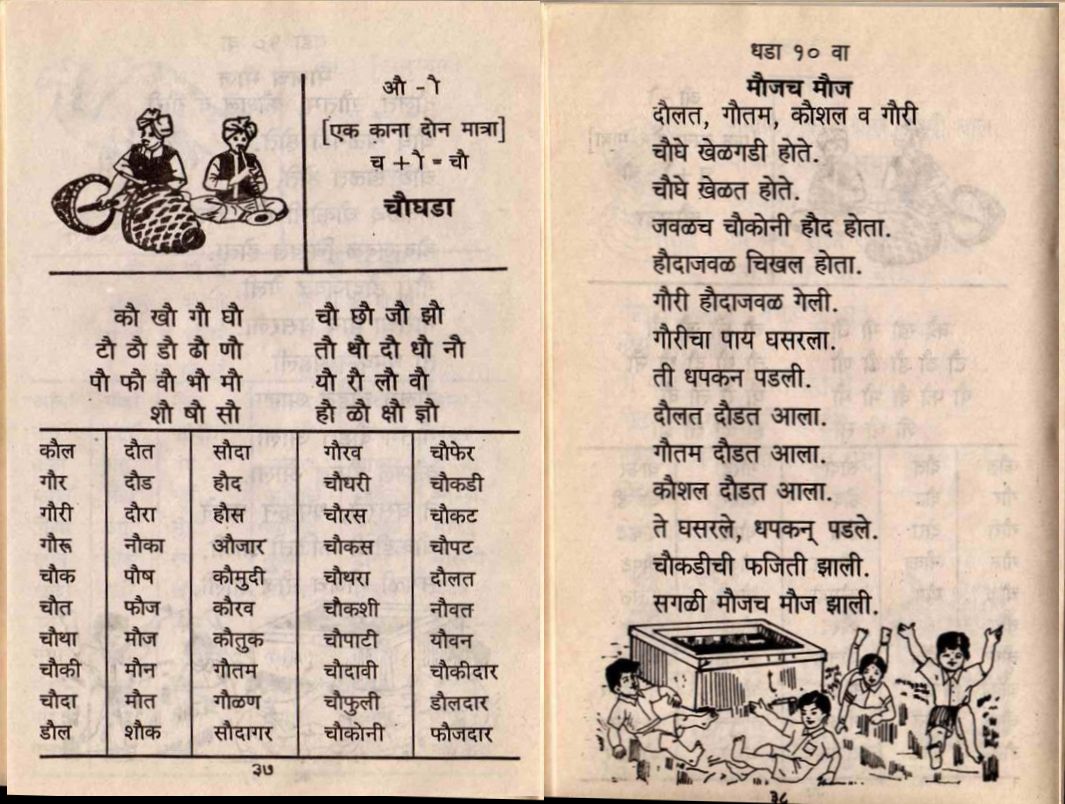 औ - ौ
[एक काना दोन मात्रा]
च + ौ = चौ
चौघडा
कौ खौ गौ घौ चौ छौ जौ झौ
टौ ठौ डौ ढौ णौ तौ थौ दौ धौ नौ
पौ फौ बौ भौ मौ यौ रौ लौ वौ
शौ षौ सौ हौ ळौ क्षौ ज्ञौ
कौल दौत सौदा गौरव चौफेर
गौर दौड हौद चौघरी चौकडी
गौरी दौरा हौस चौरस चौकट
गौरू नौका औजार चौकस चौपट
चौक पौष कौमुदी चौथरा दौलत
चौत फौज कौरव चौकशी नौवत
चौथा मौज कौतुक चौपाटी यौवन
चौकी मौन गौतम चौदावी चौकीदार
चौदा मौत गौळण चौफुली डौलदार
डौल शौक सौदागर चौकोनी फौजदार
३७
धडा १० वा
मौजच मौज
दौलत, गौतम, कौशल व गौरी
चौघे खेळगडी होते.
चौघे खेळत होते.
जवळच चौकोनी हौद होता.
हौदाजवळ चिखल होता.
गौरी हौदाजवळ गेली.
गौरीचा पाय घसरला.
ती धपकन पडली.
दौलत दौडत आला.
गौतम दौडत आला.
कौशल दौडत आला.
ते घसरले, धपकन् पडले.
चौकडीची फजिती झाली.
सगळी मौजच मौज झाली.
३८